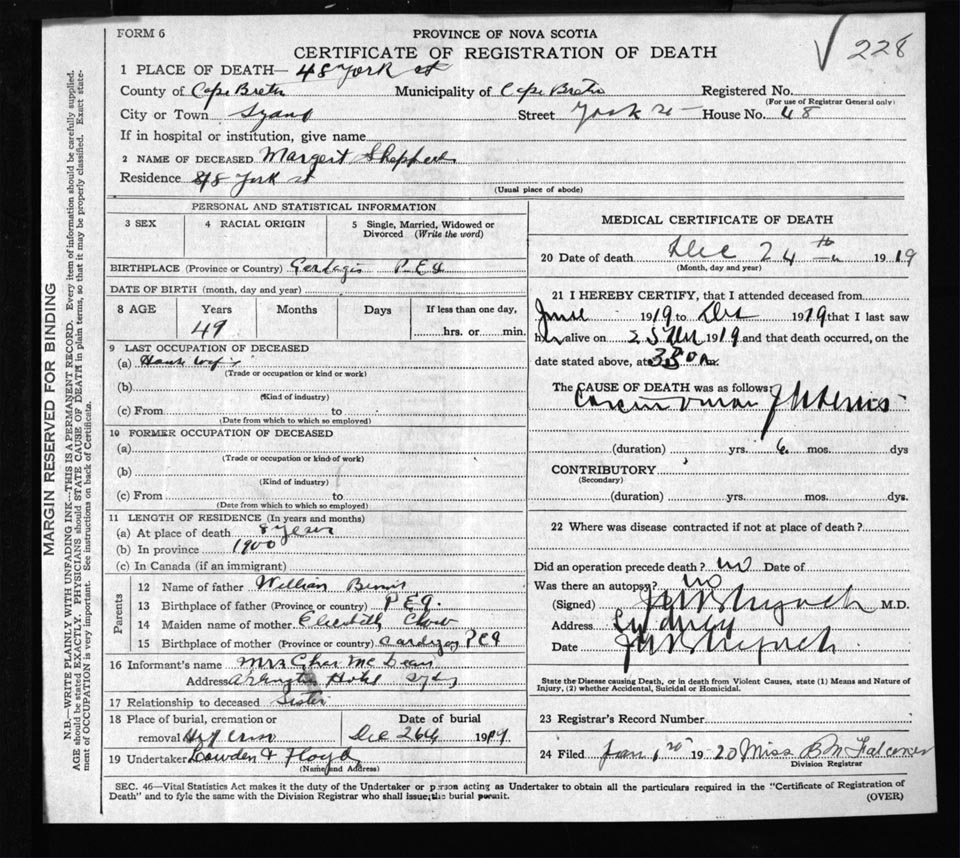 FORM 6
PROVINCE OF NOVA SCOTIA
CERTIFICATE OF REGISTRATION OF DEATH
√ 228
1 PLACE OF DEATH— 48 York st
County of Cape Breton Municipality of Cape Breton Registered No.
(For use of Registrar General only)
City or Town Street York st House No. 48
If in hospital or institution, give name
2 NAME OF DECEASED Margert
Residence York st
(Usual place of abode)
PERSONAL AND STATISTICAL INFORMATION
3 SEX 4 RACIAL ORIGIN 5 Single, Married, Widowed or Divorced (Write the word)
BIRTHPLACE (Province or Country) P.E.I
DATE OF BIRTH (month, day and year)
8 AGE Years Months Days If less than one day,
49 hrs. or min.
9 LAST OCCUPATION OF DECEASED
(a) House wife
(Trade or occupation or kind or work)
(b)
(Kind of industry)
(c) From to
(Date from which to which so employed)
10 FORMER OCCUPATION OF DECEASED
(a)
(Trade or occupation or kind of work)
(b)
(Kind of industry)
(c) From to
(Date from which to which so employed)
11 LENGTH OF RESIDENCE (In years and months)
(a) At place of death 8 years
(b) In province 1900
(c) In Canada (if an immigrant)
Parents
12 Name of father William
13 Birthplace of father (Province or country) P E I.
14 Maiden name of mother Elizabeth
15 Birthplace of mother (Province or country) Cardigan PEI
16 Informant's name Mrs Chas Mc Lean
Address Hotel Sydney
17 Relationship to deceased Sister
18 Place of burial, cremation or removal Date of burial
Dec 26th 1919
19 Undertaker Lowden & Floyd
(Name and Address)
MEDICAL CERTIFICATE OF DEATH
20 Date of death Dec 24th 1919
(Month, day and year)
21 I HEREBY CERTIFY, that I attended deceased from
June 1919 to Dec 1919 that I last saw
her alive on 1919 and that death occurred, on the
date stated above, at m.
The CAUSE OF DEATH was as follows:
Carcinoma of Uterus
(duration) yrs. 6 mos. dys
CONTRIBUTORY
(Secondary)
(duration) yrs. mos. dys.
22 Where was disease contracted if not at place of death?
Did an operation precede death? no Date of
Was there an autopsy? no
(Signed) M.D.
Address Sydney
Date
State the Disease causing Death, or in death from Violent Causes, state (1) Means and Nature of
Injury, (2) whether Accidental, Suicidal or Homicidal.
23 Registrar's Record Number
24 Filed Jan 1920 Miss B M Falconer
Division Registrar
SEC. 46—Vital Statistics Act makes it the duty of the Undertaker or person acting as Undertaker to obtain all the particulars required in the "Certificate of Registration of
Death" and to fyle the same with the Division Registrar who shall issue the burial permit.
(OVER)
MARGIN RESERVED FOR BINDING
N.B.—WRITE PLAINLY WITH UNFADING INK—THIS IS A PERMANENT RECORD. Every item of information should be carefully supplied.
AGE should be stated EXACTLY. PHYSICIANS should STATE CAUSE OF DEATH in plain terms, so that it may be properly classified. Exact state-
ment of OCCUPATION is very important. See instructions on back of Certificate.